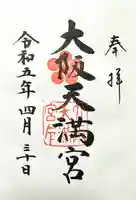 奉拝
大阪天満宮
令和五年四月三十日